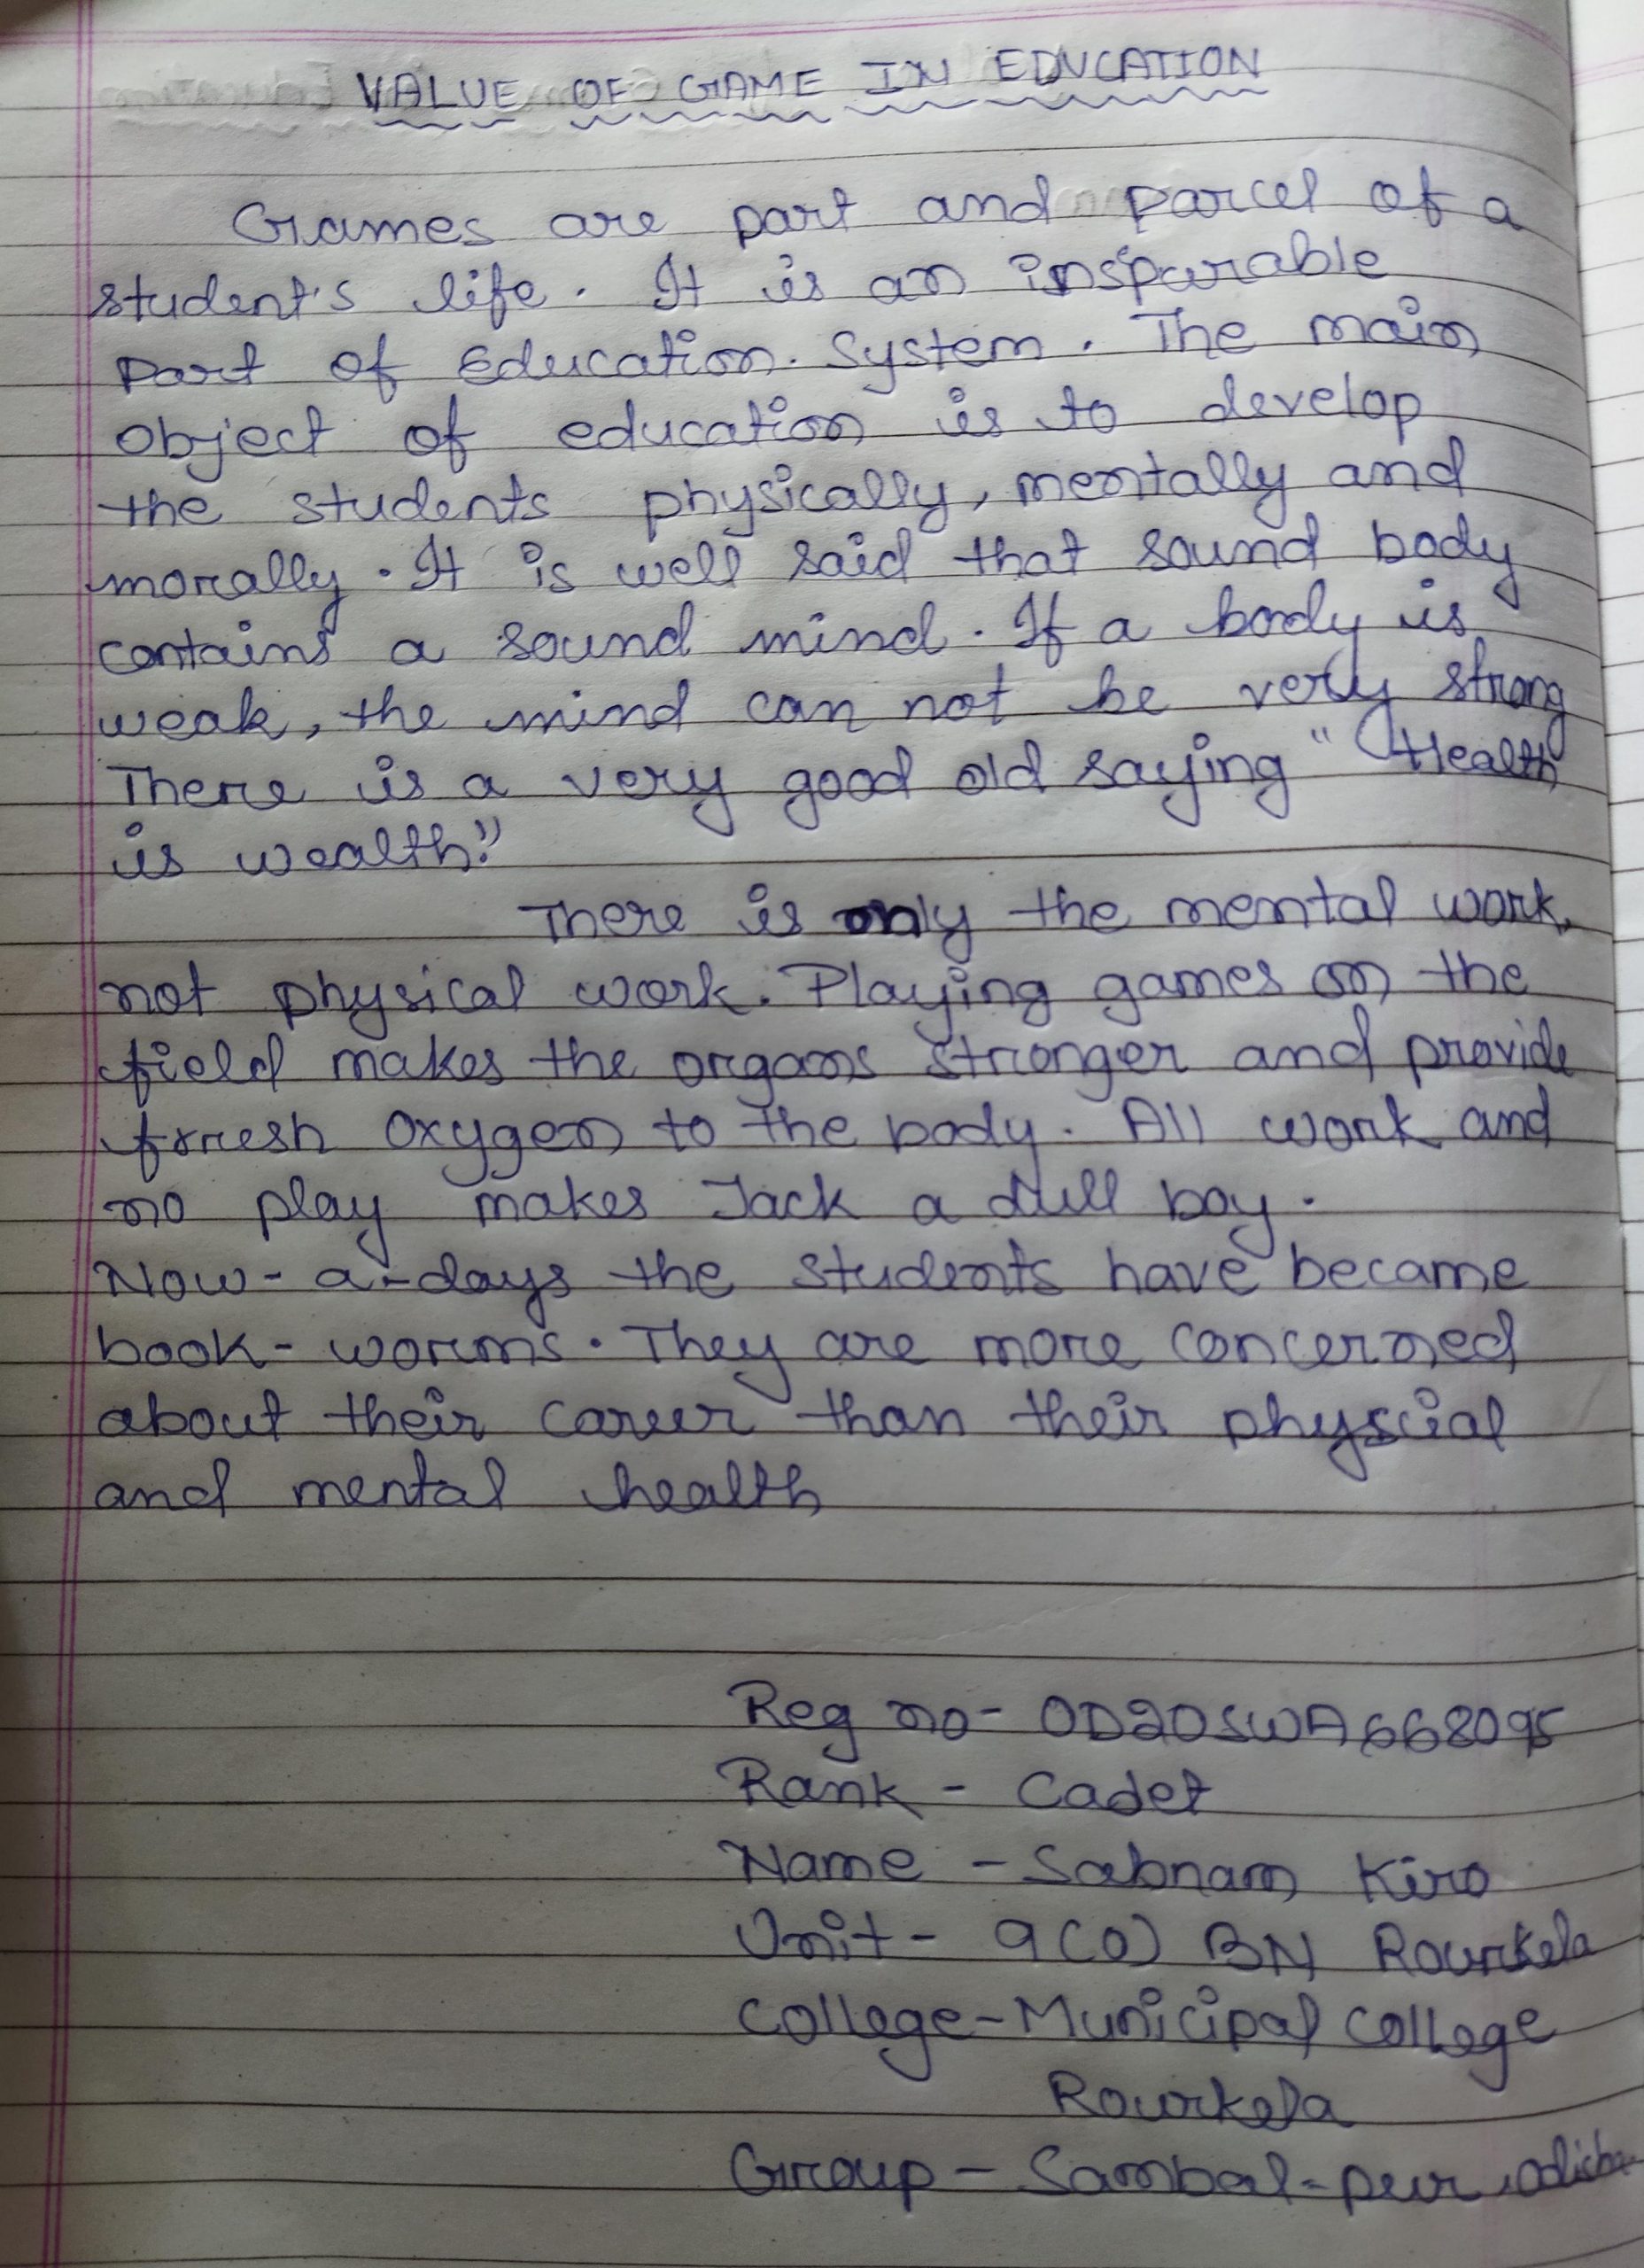 VALUE OF GAME IN EDUCATION
Games are part and parcel of a
student's life. It is an insparable
Part of Education. System. The main
Object of education is to develop
the students physically, mentally and
morally. It is well said that sound body
contains a sound mind. If a body is
weak, the mind can not be very strong
There is a very good old saying " Health
is wealth."
There is only the mental work,
not physical work. Playing games on the
field makes the organs stronger and provide
fresh oxygen to the body. All work and
no play makes Jack a dull boy.
Now-a-days the students have became
book-worms. They are more concerned
about their career than their physcial
and mental health
Reg no- OD20SWA668095
Rank - Cadet
Name - Sabnam Kiro
Unit- 9(O) BN Rourkela
College-Municipal College
Rourkela
Group - Sambal-pur, Odisha